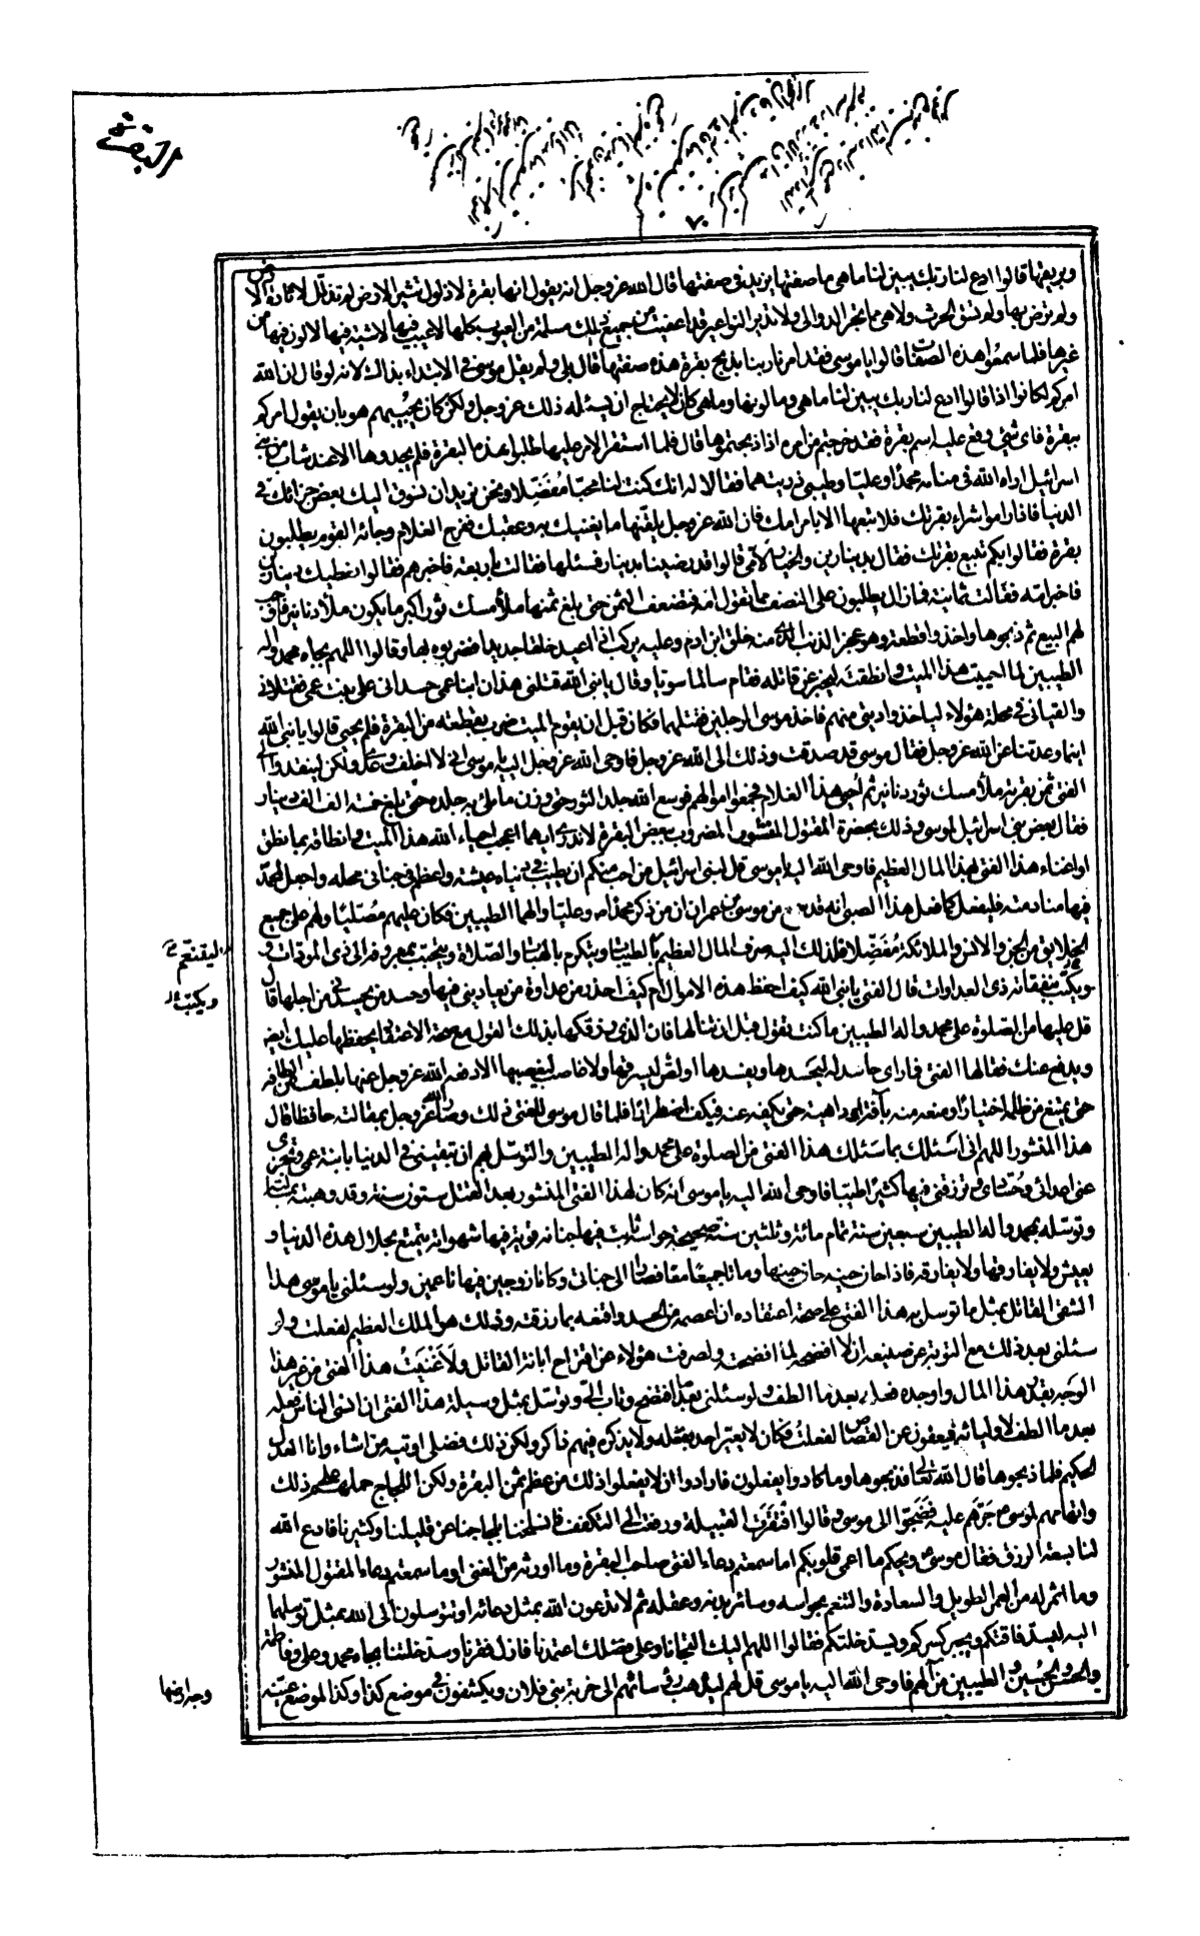 وبريقها قالوا ادع لنا ربك يبين لنا ما هي ما صفتها يزيد في صفتها قال الله عز وجل انه يقول انها بقرة لا ذلول تثير الارض لم تذلل لاثارة الارض
ولم ترض بها ولا تسقي الحرث ولا هي مما تجر الدوالي ولا تدير النواعير قد اعفيت من جميع ذلك مسلمة من العيوب كلها لا عيب فيها لا شية فيها لا لون فيها من
غيرها فلما سمعوا هذه الصفات قالوا يا موسى فقد امرنا ربنا بذبح بقرة هذه صفتها قال بلى ولم يقل موسى في الابتداء بذلك لانه لو قال ان الله
امركم لكانوا اذا قالوا ادع لنا ربك يبين لنا ما هي وما لونها وما هي كان لا يحتاج ان يسئله ذلك عز وجل ولكن كان يجيبهم هو بان يقول امركم
ببقرة فاي شئ وقع عليه اسم بقرة فقد خرجتم من امره اذا ذبحتموها قال فلما استقر الامر عليها طلبوا هذه البقرة فلم يجدوها الا عند شاب من بني
اسرائيل اراه الله في منامه محمدا وعليا وطيبي ذريتهما فقالا له انك كنت لنا محبا مفضلا ونحن نريد ان نسوق اليك بعض جزائك في
الدنيا فاذا راموا شراء بقرتك فلا تبعها الا بامر امك فان الله عز وجل يلقنها ما يغنيك به وعقبك ففرح الغلام وجائه القوم يطلبون
بقرة فقالوا بكم تبيع بقرتك فقال بدينارين والخيار لامي قالوا قد رضينا بدينار فسئلها فقالت باربعة فاخبرهم فقالوا نعطيك دينارين
فاخبر امه فقالت ثمانية فما زال يطلبون على النصف مما تقول امه فتضعف الثمن حتى بلغ ثمنها ملأ مسك ثور اكبر ما يكون ملأ دنانير فاوجب
لهم البيع ثم ذبحوها واخذوا قطعة وهو عجز الذنب الذي منه خلق ابن ادم وعليه يركب اذا اعيد خلقا جديدا فضربوه بها وقالوا اللهم بجاه محمد واله
الطيبين لما احييت هذا الميت وانطقته ليخبر عن قاتله فقام سالما سويا وقال يا نبي الله قتلني هذان ابنا عمي حسداني على بنت عمي فقتلاني
والقياني في محلة هؤلاء لياخذوا ديتي منهم فاخذ موسى الرجلين فقتلهما فكان قبل ان يقوم الميت ضرب بقطعة من البقرة فلم يحيى قالوا يا نبي الله
اين ما وعدتنا عن الله عز وجل فقال موسى قد صدقت وذلك الى الله عز وجل فاوحى الله عز وجل اليه يا موسى اني لا اخلف وعدي ولكن لينقدوا
الفتى ثمن بقرته ملأ مسك ثور دنانير ثم احيي هذا الغلام فجمعوا اموالهم فوسع الله جلد الثور حتى وزن ما ملئ به جلده حتى بلغ خمسة الف الف دينار
فقال بعض بني اسرائيل لموسى وذلك بحضرة المقتول المنشور المضروب ببعض البقرة لا ندري ايهما اعجب احياء الله هذا الميت وانطاقه بما نطق
او اغناء هذا الفتى بهذا المال العظيم فاوحى الله اليه يا موسى قل لبني اسرائيل من احب منكم ان يطيب في دنياه عيشه واعظم في جناني محله واجعل لمحمد
فيها منادمته فليفعل كما فعل هذا الصبي انه قد سمع من موسى بن عمران ان من ذكر محمدا وعليا والهما الطيبين فكان عليهم مصليا ولهم على جميع
الخلايق من الجن والانس والملائكة مفضلا فلذلك اليه صرف المال العظيم بالطيبات ويتكرم بالهبات والصلات ويتحبب بمعروفه الى ذي المودات
ويكبت بنفقاته ذي العداوات قال الفتى يا نبي الله كيف احفظ هذه الاموال ام كيف احذر من عداوة من يعاديني فيها وحسد من يحسدني من اجلها قال
قل عليها من الصلوة على محمد واله الطيبين ما كنت تقول قبل ان تنالها فان الذي رزقكها بذلك القول مع صحة الاعتقاد يحفظها عليك ايضا
ويدفع عنك فقالها الفتى فما راى حاسد له ليحسدها ويفسدها او لص ليسرقها ولا غاصب ليغصبها الا دفعه الله عز وجل عنها بلطف من الطافه
حتى يمتنع من ظلمه اختيارا او منعه منه بآفة او داهية حتى يكفه عنه فيكف اضطرارا فلما قال موسى للفتى ذلك وصار الله عز وجل بمقالته حافظا قال
هذا المنشور اللهم اني اسئلك بما سئلك هذا الفتى من الصلوة على محمد واله الطيبين والتوسل بهم ان تبقيني في الدنيا بابنة عمي وتجزي
عني اعدائي وحسادي وترزقني فيها كثيرا طيبا فاوحى الله اليه يا موسى انه كان لهذا الفتى المنشور بعد القتل ستون سنة وقد وهبته بمسئلته
وتوسله بمحمد واله الطيبين سبعين سنة تمام مائة وثلثين سنة صحيحة حواسه ثابت فيها جنانه قوية فيها شهواته يتمتع بحلال هذه الدنيا و
يعيش ولا يفارقها ولا يفارقه فاذا حان حينه حان حينها وماتا جميعا معا فصارا الى جناني وكانا زوجين فيها ناعمين ولو سئلني يا موسى هذا
الشقي القاتل بمثل ما توسل به هذا الفتى على صحة اعتقاده ان اعصمه من الحسد واقنعه بما رزقته وذلك هو الملك العظيم لفعلت ولو
سئلني بعد ذلك مع التوبة عن صنيعه ان لا افضحه لما افضحته ولصرفت هؤلاء عن اقتراح ابانة القاتل ولاغنيت هذا الفتى من غير هذا
الوجه بقدر هذا المال واوجده ولو سئلني بعد ما افتضح وتاب الي وتوسل بمثل وسيلة هذا الفتى ان انسي الناس فعله
بعد ما الطف لاوليائه فيعفون عن القصاص لفعلت فكان لا يعيره احد بفعله ولا يذكره فيهم ذاكر ولكن ذلك فضلي اوتيه من اشاء وانا العدل
الحكيم فلما ذبحوها قال الله تعالى فذبحوها وما كادوا يفعلون فارادوا ان لا يفعلوا ذلك من عظم ثمن البقرة ولكن اللجاج حملهم على ذلك
واتهامهم لموسى جرهم عليه فضجوا الى موسى وقالوا افتقرت القبيلة ورفعت الى التكفف فانسلخنا بلجاجنا عن قليلنا وكثيرنا فادع الله
لنا بسعة الرزق فقال موسى ويحكم ما اعمى قلوبكم اما سمعتم دعاء الفتى صاحب البقرة وما اورثه من الغنى او ما سمعتم دعاء المقتول المنشور
وما اثمر له من العمر الطويل والسعادة والتنعم بحواسه وسائر بدنه وعقله ثم لا تدعون الله بمثل دعائه او تتوسلون الى الله بمثل توسلهما
اليه ليسد فاقتكم ويجبر كسركم ويسد خلتكم فقالوا اللهم اليك التجأنا وعلى فضلك اعتمدنا فازل فقرنا وسد خلتنا بجاه محمد وعلي وفاطمة
والحسن والحسين والطيبين من آلهم فاوحى الله اليه يا موسى قل لهم ليذهب رؤسائهم الى خربة بني فلان ويكشفون في موضع كذا وكذا لموضع عينه
٧٠
ليتنعم
ويكبت